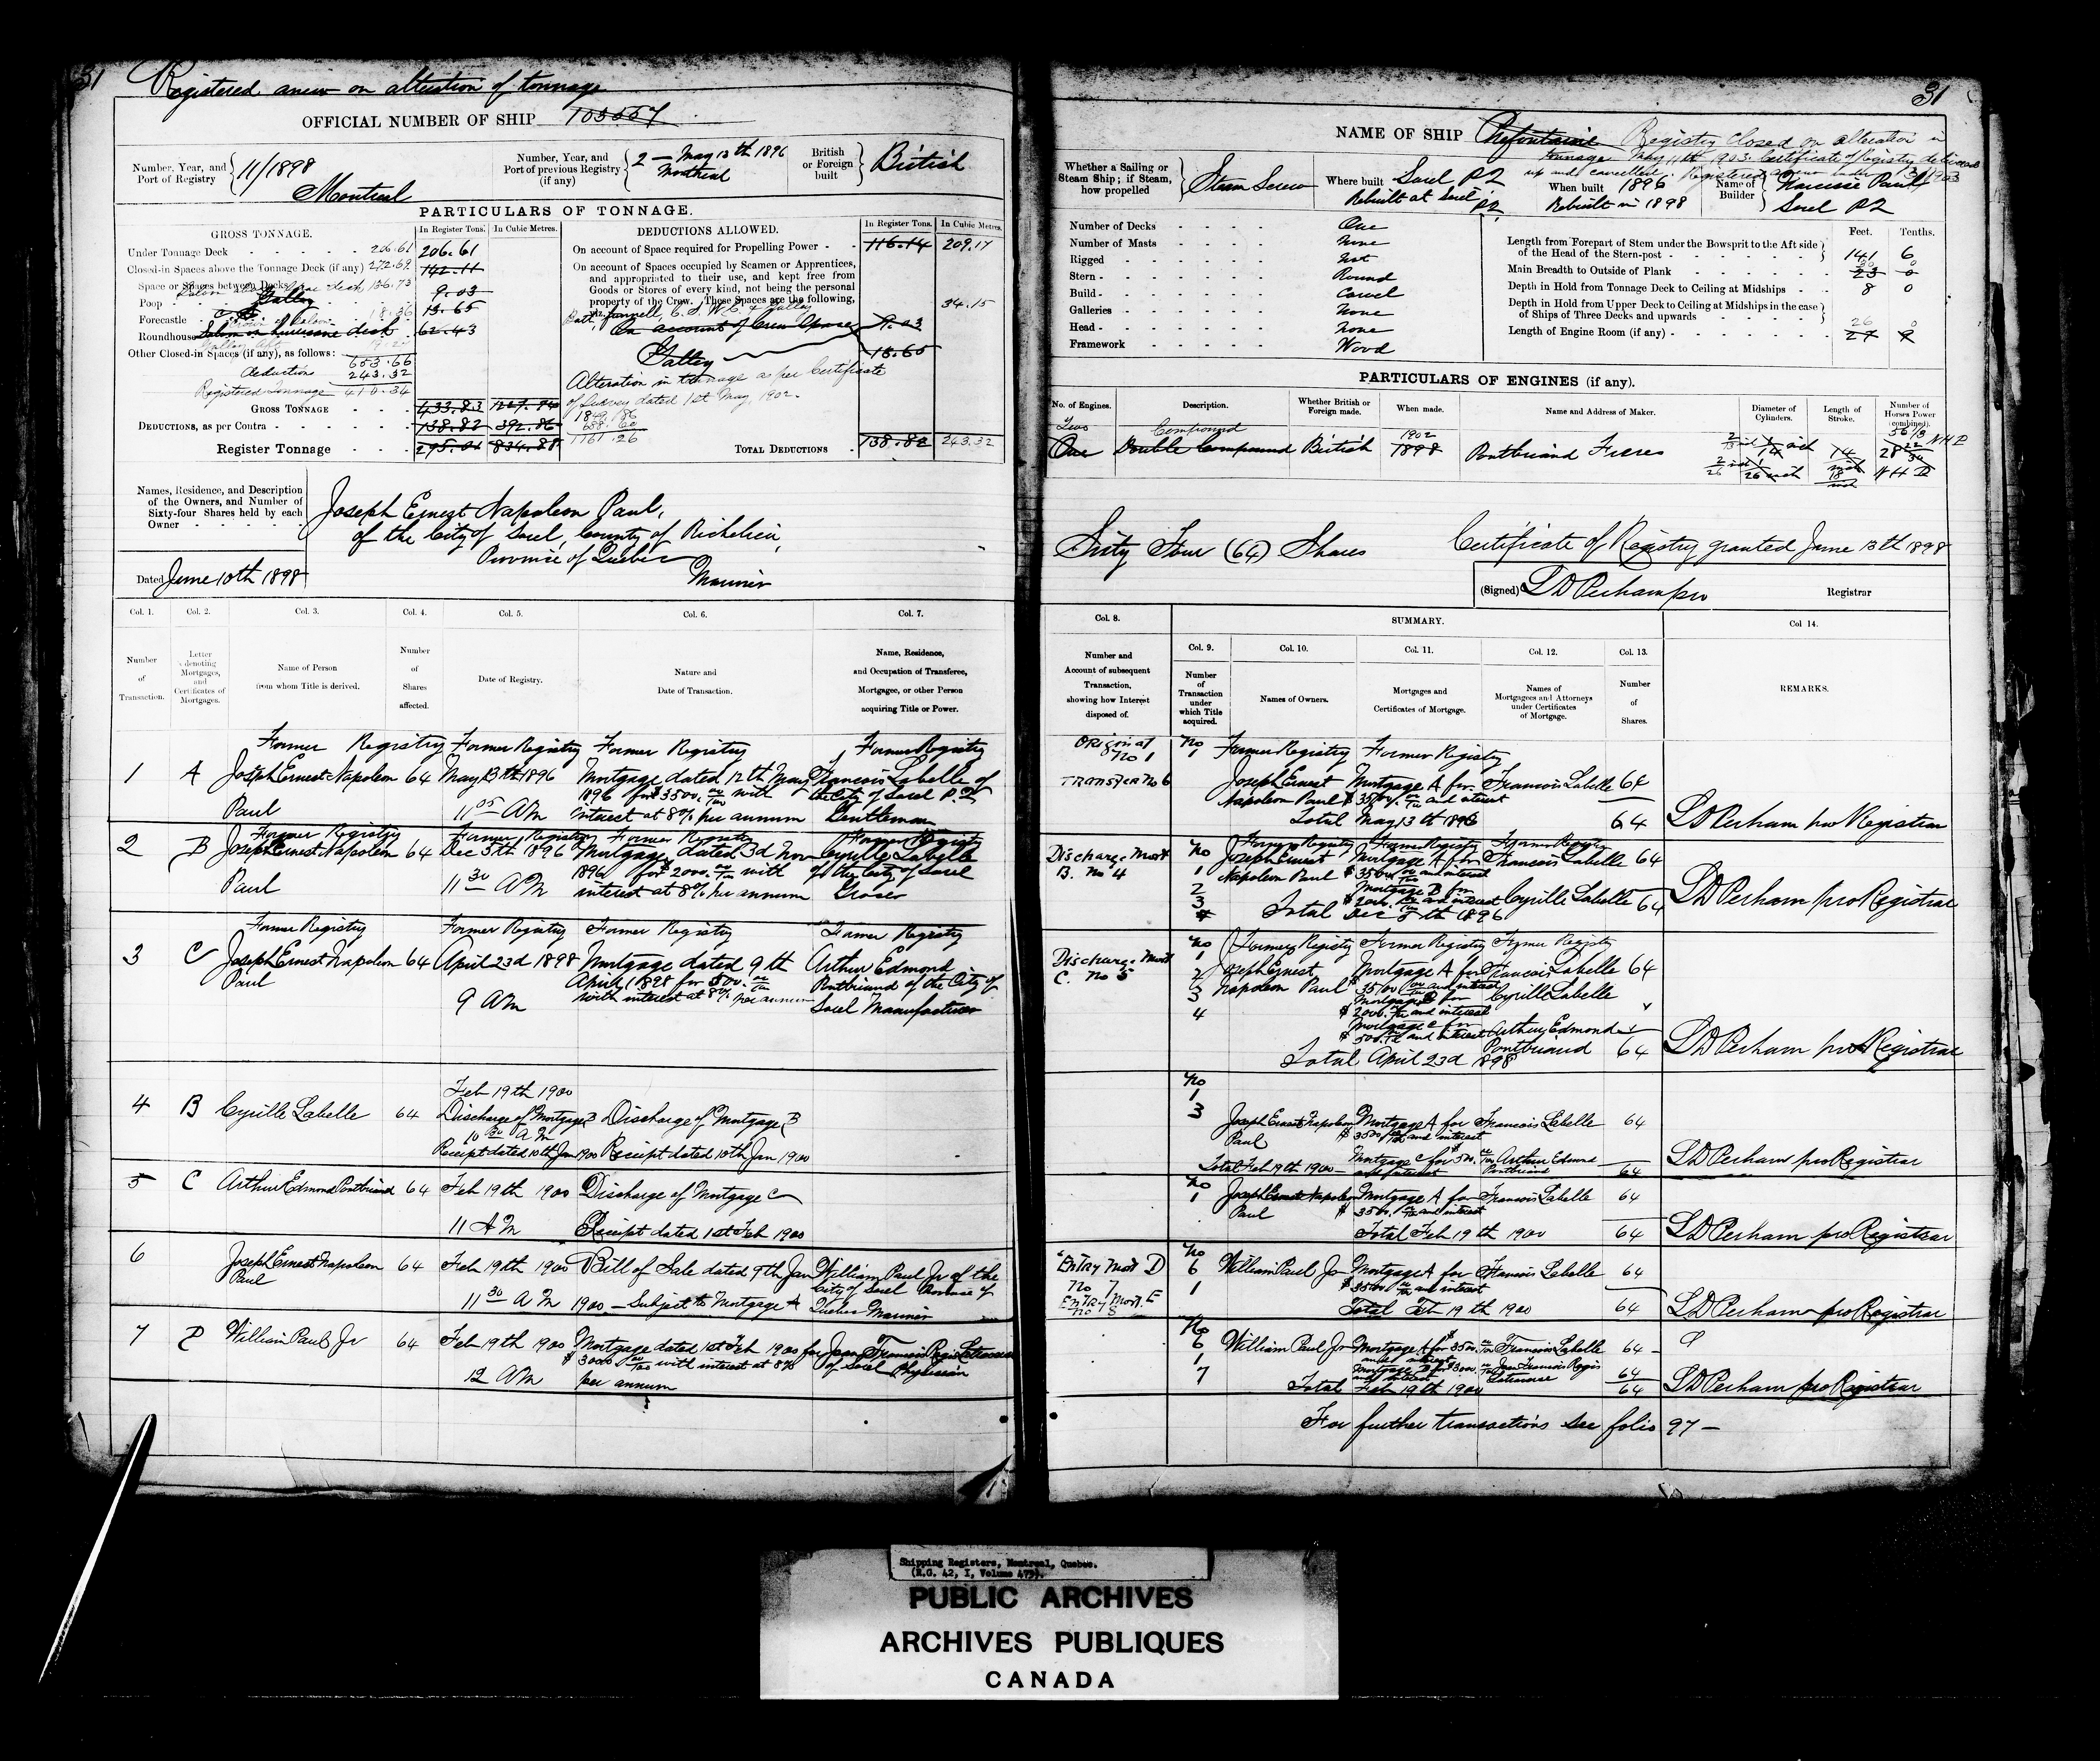 31
Registered anew on alteration of tonnage
OFFICIAL NUMBER OF SHIP 103557
Number, Year, and Port of Registry 11/1898 Montreal
Number, Year, and Port of previous Registry (if any) 2 — May 13th 1896 Montreal
British or Foreign built British
PARTICULARS OF TONNAGE.
GROSS TONNAGE.
In Register Tons. In Cubic Metres.
Under Tonnage Deck 206.61 206.61
Closed-in Spaces above the Tonnage Deck (if any) 272.69 142.11
Space or Spaces between Decks 9.03
Poop Galley 13.65
Forecastle 18.36
Roundhouse Saloon on hurricane deck 62.43
Other Closed-in Spaces (if any), as follows:
653.66
deduction 243.32
Registered Tonnage 410.34
GROSS TONNAGE 433.83 1227.74
DEDUCTIONS, as per Contra 138.82 392.86
Register Tonnage 295.01 834.88
DEDUCTIONS ALLOWED.
In Register Tons. In Cubic Metres.
On account of Space required for Propelling Power 116.14 209.17
On account of Spaces occupied by Seamen or Apprentices,
and appropriated to their use, and kept free from
Goods or Stores of every kind, not being the personal
property of the Crew. These Spaces are the following, 34.15
On account of Crew Space 9.03
Galley 13.65
Alteration in tonnage as per Certificate
of Survey dated 1st May, 1902.
1849.86
688.60
1161.26
TOTAL DEDUCTIONS 138.82 243.32
Names, Residence, and Description
of the Owners, and Number of
Sixty-four Shares held by each
Owner
Joseph Ernest Napoleon Paul,
of the City of Sorel, County of Richelieu,
Province of Quebec
Mariner
Dated June 10th 1898
Col. 1. Col. 2. Col. 3. Col. 4. Col. 5. Col. 6. Col. 7.
Number of Transaction.
Letter denoting Mortgages, and Certificates of Mortgages.
Name of Person from whom Title is derived.
Number of Shares affected.
Date of Registry.
Nature and Date of Transaction.
Name, Residence, and Occupation of Transferee, Mortgagee, or other Person acquiring Title or Power.
Former Registry Former Registry Former Registry Former Registry
1 A Joseph Ernest Napoleon 64 May 13th 1896 Mortgage dated 12th May Francois Labelle of
1896 for $3500. 00/100 with the City of Sorel P.Q
Paul 11 05 AM interest at 8% per annum Gentleman
Former Registry Former Registry Former Registry Former Registry
2 B Joseph Ernest Napoleon 64 Dec 5th 1896 Mortgage dated 3d Nov Cyrille Labelle
1896 for $2000. 00/100 with of the City of Sorel
Paul 11 30 AM interest at 8% per annum Grocer
Former Registry Former Registry Former Registry Former Registry
3 C Joseph Ernest Napoleon 64 April 23d 1898 Mortgage dated 9th Arthur Edmond
Paul April 1898 for $500. 00/100 Pontbriand of the City of
9 AM with interest at 8% per annum Sorel Manufacturer
Feb 19th 1900
4 B Cyrille Labelle 64 Discharge of Mortgage B Discharge of Mortgage B
10 30 AM
Receipt dated 10th Jan 1900 Receipt dated 10th Jan 1900
5 C Arthur Edmond Pontbriand 64 Feb 19th 1900 Discharge of Mortgage C
11 AM Receipt dated 1st Feb 1900
6 Joseph Ernest Napoleon 64 Feb 19th 1900 Bill of Sale dated 9th Jan William Paul Jr of the
Paul City of Sorel Province of
11 30 AM 1900 — Subject to Mortgage A Quebec Mariner
7 D William Paul Jr 64 Feb 19th 1900 Mortgage dated 1st Feb 1900 for Jean Francois Regis Latraverse
$3000 00/100 with interest at 8% of Sorel Physician
12 AM per annum
31
NAME OF SHIP Prefontaine Registry closed on alteration in
tonnage May 11th 1903. Certificate of Registry delivered
up and cancelled. Registered anew
Whether a Sailing or Steam Ship; if Steam, how propelled Steam Screw
Where built Sorel PQ
Rebuilt at Sorel PQ
When built 1896
Rebuilt in 1898
Name of Builder Narcisse Paul
Sorel PQ
Number of Decks One
Number of Masts None
Rigged Not
Stern Round
Build Carvel
Galleries None
Head None
Framework Wood
Feet. Tenths.
Length from Forepart of Stem under the Bowsprit to the Aft side
of the Head of the Stern-post 141 6
Main Breadth to Outside of Plank 30 0 23 0
Depth in Hold from Tonnage Deck to Ceiling at Midships 8 0
Depth in Hold from Upper Deck to Ceiling at Midships in the case
of Ships of Three Decks and upwards
Length of Engine Room (if any) 26 0 27 9
PARTICULARS OF ENGINES (if any).
No. of Engines. Description. Whether British or Foreign made. When made. Name and Address of Maker. Diameter of Cylinders. Length of Stroke. Number of Horses Power (combined).
Two Compound 1902
One Double Compound British 1898 Pontbriand Freres
Sixty Four (64) Shares Certificate of Registry granted June 13th 1898
(Signed) LD Perham pro Registrar
Col. 8. SUMMARY. Col 14.
Number and Account of subsequent Transaction, showing how Interest disposed of.
Col. 9. Col. 10. Col. 11. Col. 12. Col. 13.
Number of Transaction under which Title acquired.
Names of Owners.
Mortgages and Certificates of Mortgage.
Names of Mortgagees and Attorneys under Certificates of Mortgage.
Number of Shares.
REMARKS.
Original No 1 No 1 Former Registry Former Registry
Transfer No 6 Joseph Ernest Mortgage A for Francois Labelle 64
Napoleon Paul $3500. 00/100 and interest
Total May 13th 1896 64 LD Perham pro Registrar
Former Registry Former Registry Former Registry
Discharge Mort No Joseph Ernest Mortgage A for Francois Labelle 64
B. No 4 1 Napoleon Paul $3500. 00/100 and interest
2 Mortgage B for
3 $2000. 00/100 and interest Cyrille Labelle 64
Total Dec 5th 1896 LD Perham pro Registrar
No Former Registry Former Registry Former Registry
Discharge Mort 1 Joseph Ernest Mortgage A for Francois Labelle 64
C. No 5 2 Napoleon Paul $3500 00/100 and interest
3 Mortgage B for Cyrille Labelle "
4 $2000. 00/100 and interest
Mortgage C for Arthur Edmond "
$500. 00/100 and interest Pontbriand 64
Total April 23d 1898 LD Perham pro Registrar
No
1
3 Joseph Ernest Napoleon Mortgage A for Francois Labelle 64
Paul $3500 00/100 and interest
Mortgage C for $500. 00/100 Arthur Edmond
Total Feb 19th 1900 — and interest Pontbriand 64 LD Perham pro Registrar
No
1 Joseph Ernest Napoleon Mortgage A for Francois Labelle 64
Paul $3500. 00/100 and interest
Total Feb 19th 1900 64 LD Perham pro Registrar
Entry Mort D No 7 No 6 William Paul Jr Mortgage A for Francois Labelle 64
Entry Mort. E No 8 1 $3500 00/100 and interest
Total Feb 19th 1900 64 LD Perham pro Registrar
No
6 William Paul Jr Mortgage A for $3500. 00/100 Francois Labelle 64
1 and interest
7 Mortgage D for $3000 00/100 Jean Francois Regis 64
and interest Latraverse
Total Feb 19th 1900 64 LD Perham pro Registrar
For further transactions see folio 97 —
Shipping Registers, Montreal, Quebec.
(R.G. 42, I, Volume 475).
PUBLIC ARCHIVES
ARCHIVES PUBLIQUES
CANADA